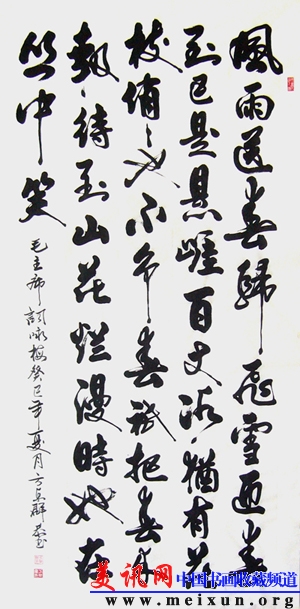 風雨送春歸飛雪迎春
到已是悬崖百丈冰猶有花
枝俏〻也不争春祇把春来
報待到山花烂漫時她在
丛中笑
毛主席詞咏梅癸巳年夏月方
美讯网 中国书画收藏频道
www.meixun.org